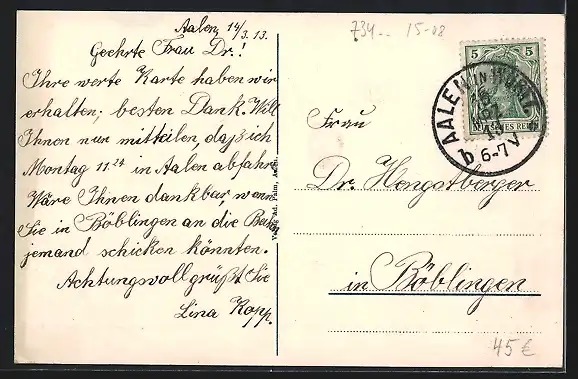 Aalen, 14/3.13.
Geehrte Frau Dr.!
Ihre werte Karte haben wir
erhalten; besten Dank. Will
Ihnen nur mitteilen, daß ich
Montag 11.24 in Aalen abfahre.
Wäre Ihnen dankbar wenn
Sie in Böblingen an die Bahn
jemand schicken könnten.
Achtungsvoll grüßt Sie
Lina Kopp.
Verlag Ad. Palm, Aalen.
734.. 15-08
5 5
DEUTSCHES REICH
AALEN IN WÜRTT.
13
6-7 V
b
Frau
Dr. Hengstberger
in Böblingen
45 €